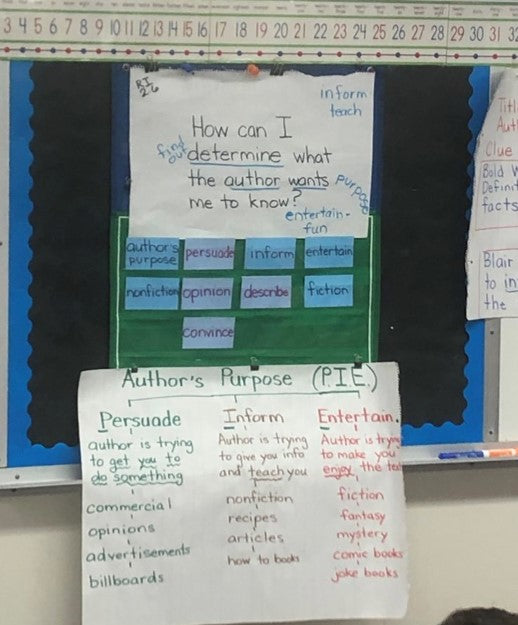 3 4 5 6 7 8 9 10 11 12 13 14 15 16 17 18 19 20 21 22 23 24 25 26 27 28 29 30 31 32
RI
2.6
inform
teach
How can I
find
out
determine what
the author wants
purpose
me to know?
entertain-
fun
author's
purpose
persuade
inform
entertain
nonfiction
opinion
describe
fiction
convince
Author's Purpose (P.I.E.)
Persuade
author is trying
to get you to
do something
commercial
opinions
advertisements
billboards
Inform
Author is trying
to give you info
and teach you
nonfiction
recipes
articles
how to books
Entertain.
Author is trying
to make you
enjoy the
fiction
fantasy
mystery
comic books
joke books
Clue
Bold
facts
Blair
to in
the